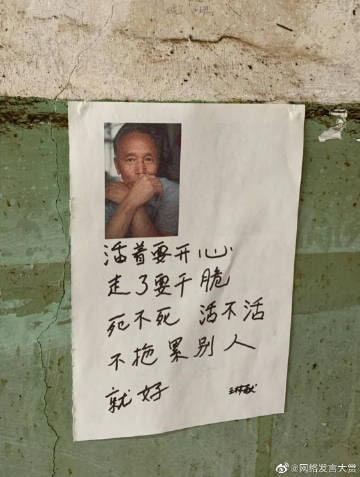 活着要开心
走了要干脆
死不死 活不活
不拖累别人
就好
@网络发言大赏